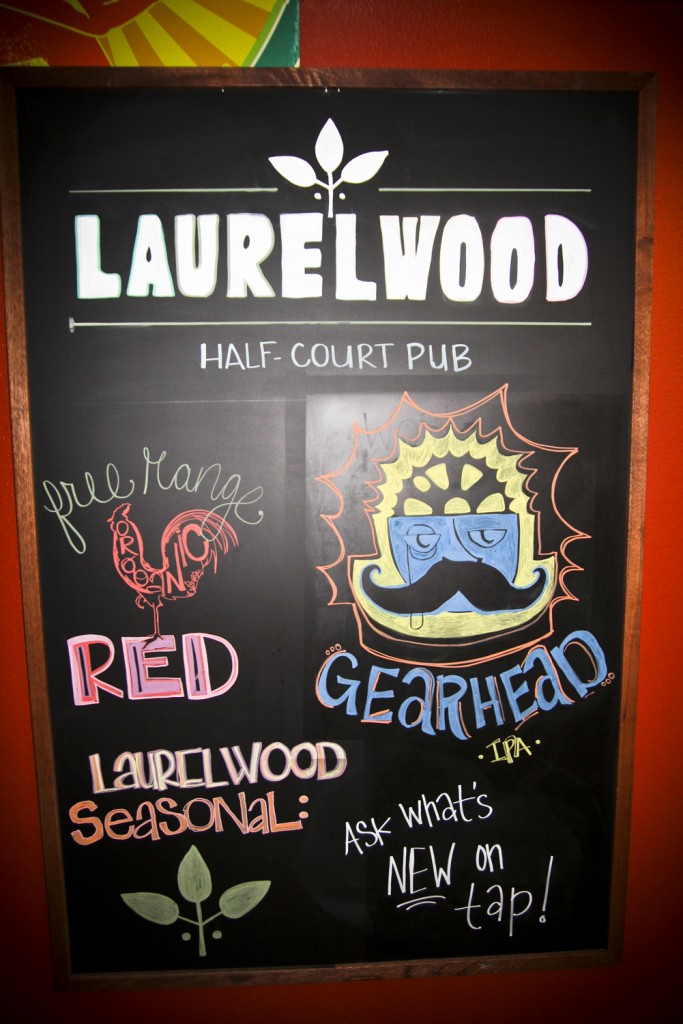 LAURELWOOD
HALF-COURT PUB
free range
ORGANIC
RED
GEARHEAD
· IPA ·
LAURELWOOD
SEASONAL:
ASK WHAT'S
NEW on
tap!